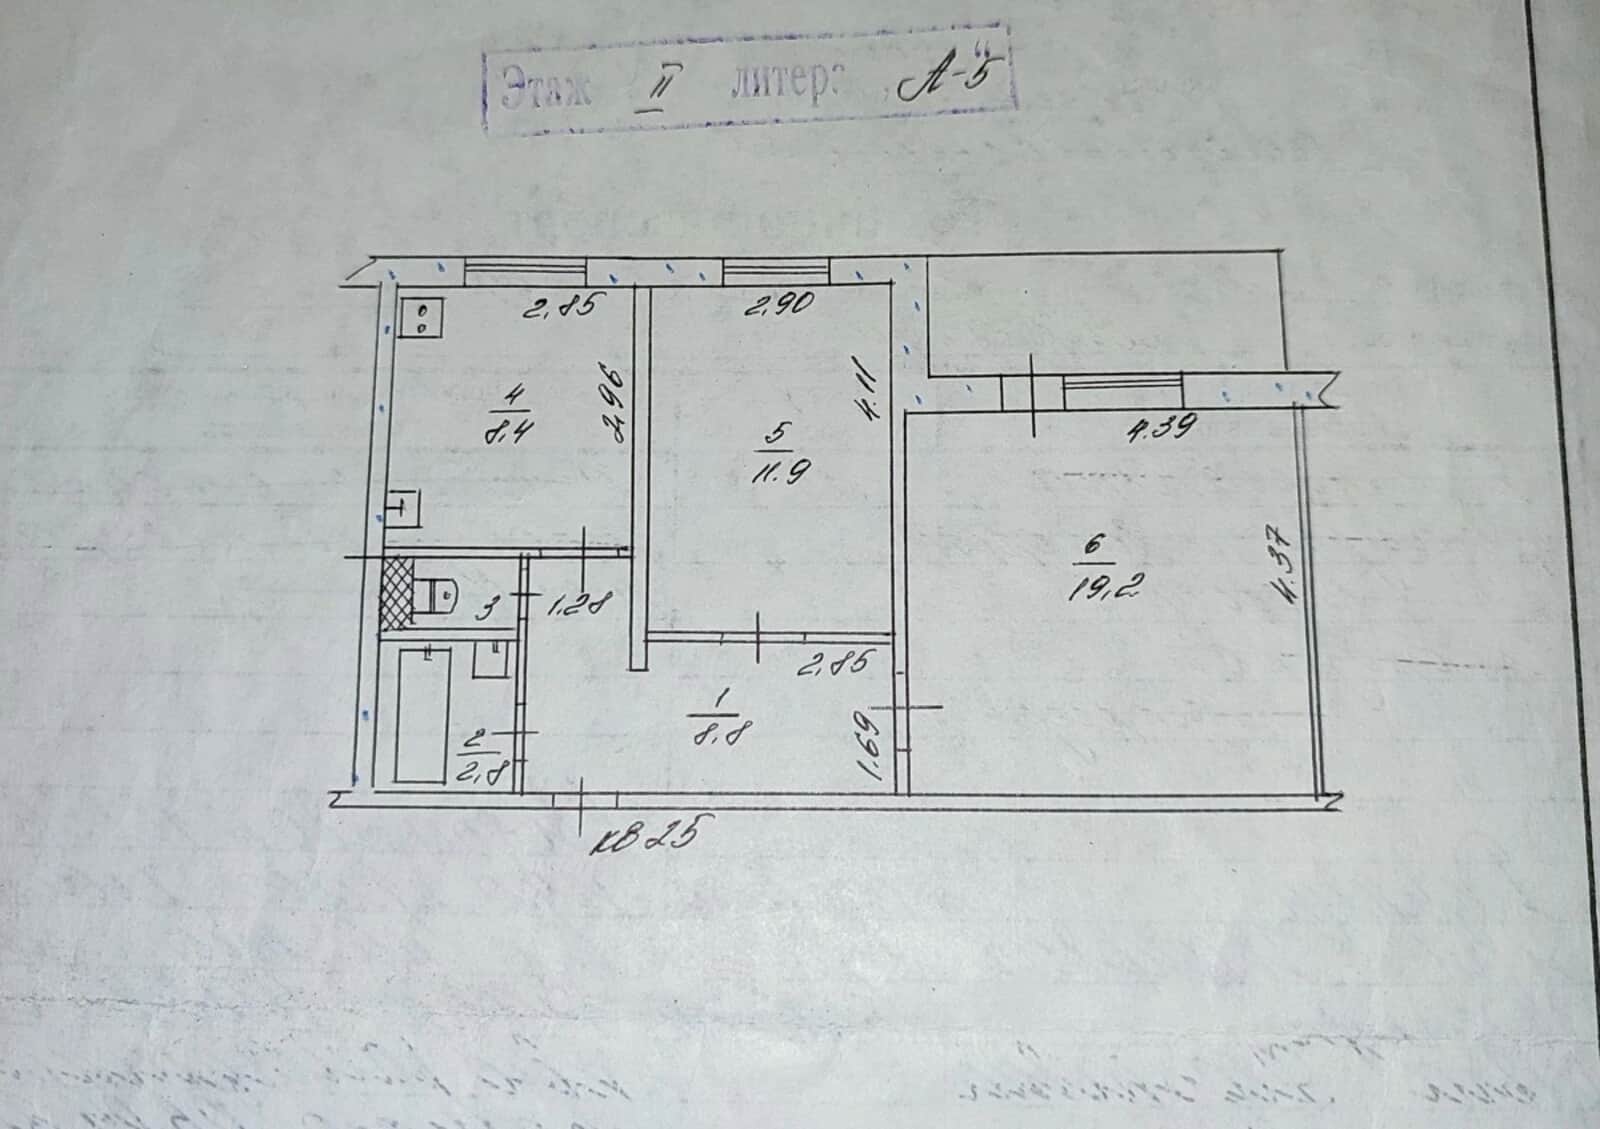 Этаж II литера „А-5“
2,85
2,90
2,96
4.11
4
8,4
5
11.9
4.39
6
19,2
4.37
3
1.28
2,85
1
8,8
1.69
2
2,8
кв 25